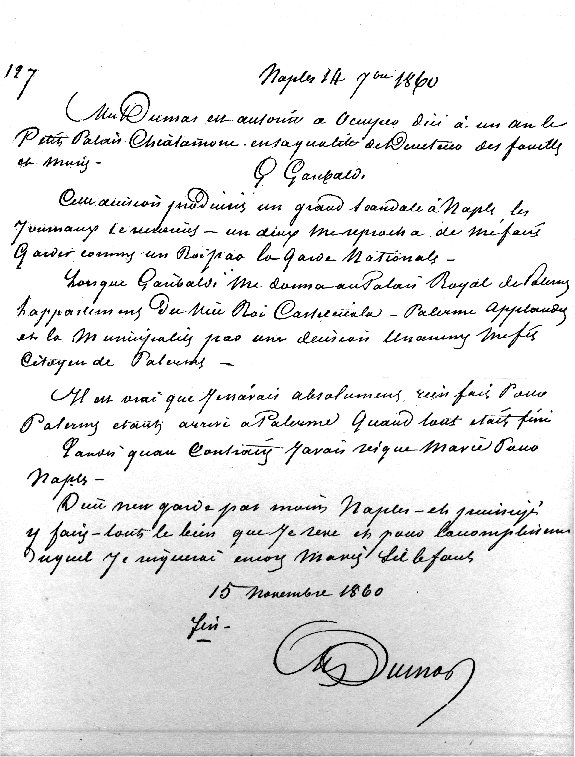 127
Naples 14 7bre 1860
Mr Dumas est autorisé a occuper d'ici à un an le
Petit Palais Chiatamone en sa qualité de Directeur des fouilles
et musés -
G Garibaldi
Cette decision produisit un grand scandale à Naples les
Journaux se - un deux me reprocha de me faire
Garder comme un Roi par la Garde Nationale -
Lorsque Garibaldi me donna au Palais Royal de Palerme
l'appartement du Vice Roi Castelcicala - Palerme applaudit
et la Municipalité par une decision unanime me fit
Citoyen de Palerme -
Il est vrai que Je n'avais absolument rien fait Pour
Palerme etant arrivé a Palerme Quand tout etait fini
Tandis qu'au Contraire J'avais risqué Ma vie Pour
Naples -
Dieu n'en garde pas moins Naples - et puissé-je
y faire tout le bien que Je reve et pour l'accomplissement
duquel Je risquerai encore Ma vie s'il le faut
15 Novembre 1860
fin -
Alex Dumas